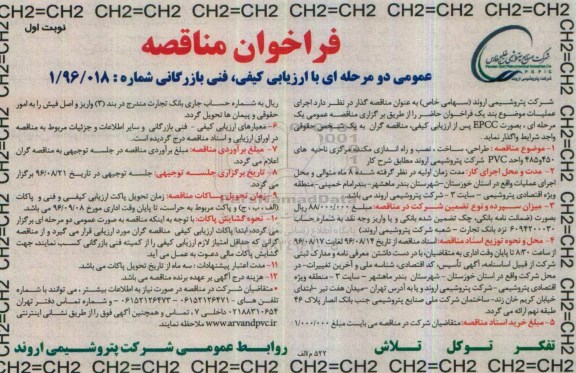 CH2=CH2=CH2=CH2=CH2=CH2=CH2=CH2=CH2=CH2
نوبت اول
فراخوان مناقصه
شرکت صنایع پتروشیمی خلیج فارس
PGPIC
شرکت پتروشیمی اروند
عمومی دو مرحله ای با ارزیابی کیفی، فنی بازرگانی شماره : ۱/۹۶/۰۱۸
شرکت پتروشیمی اروند (سهامی خاص) به عنوان مناقصه گذار در نظر دارد اجرای
عملیات موضوع بند یک فراخوان حاضر را از طریق برگزاری مناقصه عمومی یک
مرحله ای، بصورت EPCC پس از ارزیابی کیفی، مناقصه گران به یک شخص حقوقی
واجد شرایط واگذار نماید.
۱- موضوع مناقصه : طراحی، ساخت، نصب و راه اندازی مکنده مرکزی ناحیه های
۴۵۰ و ۴۸۵ واحد PVC شرکت پتروشیمی اروند مطابق شرح کار
۲- مدت و محل اجرای کار: مدت زمان اولیه در نظر گرفته شده ۸ ماه متوالی و محل
اجرای عملیات واقع در استان خوزستان-شهرستان بندر ماهشهر- بندر امام خمینی-منطقه
ویژه اقتصادی پتروشیمی - سایت ۳ شرکت پتروشیمی اروند می باشد.
۳- میزان سپرده و نوع تضمین شرکت در مناقصه: مبلغ ۸۸۰/۰۰۰/۰۰۰ ریال
بصورت (ضمانت نامه بانکی، چک تضمین شده بانکی و یا واریز وجه نقد به شماره حساب
۶۰۹۴۲۰۰۰۳۰ نزد بانک تجارت - شعبه شرکت پتروشیمی اروند)
۴- محل و نحوه توزیع اسناد مناقصه: اسناد مناقصه از تاریخ ۹۶/۰۸/۱۴ لغایت ۹۶/۰۸/۱۷
از ساعت ۸:۳۰ تا پایان وقت اداری به متقاضیان، با در دست داشتن معرفی نامه و مدارک ثبتی
شرکت از قبیل اساسنامه، آگهی تأسیس، کد اقتصادی، شناسه ملی و آخرین تغییرات- در
محل شرکت واقع در استان خوزستان -شهرستان بندر ماهشهر - سایت ۳ - منطقه ویژه
اقتصادی پتروشیمی -شرکت پتروشیمی اروند و یا به آدرس تهران -میدان هفت تیر -ابتدای
خیابان کریم خان زند- ساختمان شرکت ملی صنایع پتروشیمی جنب بانک انصار پلاک ۴۶
طبقه نهم ارائه می گردد.
۵- مبلغ خرید اسناد مناقصه: متقاضیان شرکت در مناقصه می بایست مبلغ ۱/۰۰۰/۰۰۰
ریال به شماره حساب جاری بانک تجارت مندرج در بند (۳) واریز و اصل فیش را به امور
حقوقی و پیمان ها تحویل گردد.
۶- معیارهای ارزیابی کیفی - فنی بازرگانی و سایر اطلاعات و جزئیات مربوط به مناقصه
در اوراق ارزیابی و اسناد مناقصه درج گردیده است.
۷- مبلغ برآوردی مناقصه: مبلغ برآوردی مناقصه در جلسه توجیهی به مناقصه گران
اعلام می گردد.
۸- تاریخ برگزاری جلسه توجیهی: جلسه توجیهی در تاریخ ۹۶/۰۸/۲۱ برگزار
می گردد.
۹- زمان تحویل پاکات مناقصه: زمان تحویل پاکت ارزیابی کیفی و فنی و پاکات
(الف، ب، ج) و پاکت مربوط به حراست، تا پایان وقت اداری مورخ ۹۶/۰۹/۰۸ می باشد.
۱۰- نحوه گشایش پاکات: با توجه به اینکه مناقصه به صورت عمومی دو مرحله ای برگزار
می گردد، ابتدا پاکات ارزیابی کیفی مناقصه گران مورد ارزیابی قرار می گیرد و از مناقصه
گرانی که حداقل امتیاز لازم ارزیابی کیفی را از کمیته فنی بازرگانی کسب نمایند، جهت
گشایش پاکات مالی دعوت به عمل می آید.
۱۱- مدت اعتبار پیشنهادات : سه ماه از تاریخ تحویل پاکات می باشد.
۱۲- هزینه درج آگهی بر عهده برنده مناقصه می باشد.
• متقاضیان شرکت در مناقصه در صورت نیاز به اطلاعات بیشتر، می توانند با شماره
تلفن های ۰۶۱۵۲۱۲۶۴۷۱ - ۰۶۱۵۲۱۲۶۴۷۳ و شماره تماس دفتر تهران
۰۲۱۸۸۳۱۰۶۵۴ داخلی ۷، تماس و همچنین آگهی فوق را از طریق نشانی اینترنتی
www.arvandpvc.ir ملاحظه نمایند.
تفکر توکل تلاش
۵۲۲ م الف
روابط عمومی شرکت پتروشیمی اروند
CH2=CH2=CH2=CH2=CH2=CH2=CH2=CH2=CH2=CH2